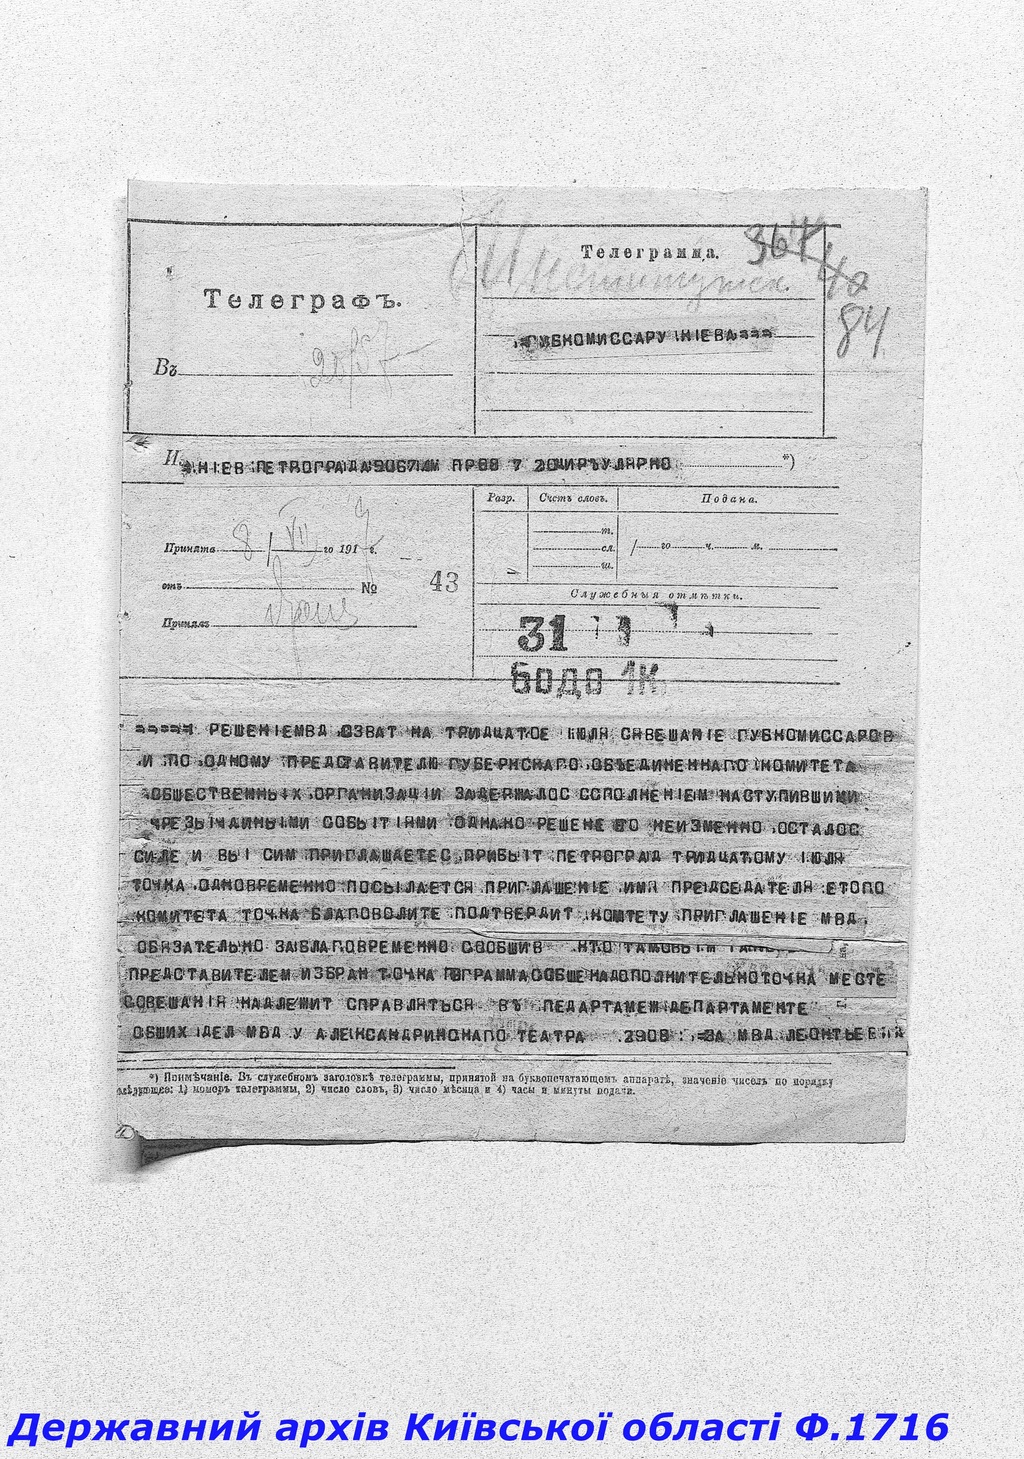 Телеграмма.
84
Телеграфъ.
ГУБКОМИССАРУ КІЕВА===
Въ
КІЕВ ПЕТРОГРАДА 7 20 ЦИРЪУЛЯРНО *)
Разр. Счетъ словъ. Подана.
т.
Принята 8/VII го 1917 г.
сл. го ч. м.
ш.
отъ № 43
Служебныя отмѣтки.
Принялъ
31
бодо 1К
===== РЕШЕНІЕМВД ОЗВАТ НА ТРИДЦАТОЕ ІЮЛЯ СЯВЕШАНІЕ ГУБКОМИССАРОВ
И ПО ОДНОМУ ПРЕДСТАВИТЕЛЮ ГУБЕРНСКАГО ОБЪЕДИНЕННАГО КОМИТЕТА
ОБШЕСТВЕННЫХ ОРГАНИЗАЦІИ ЗАДЕРЖАЛОС СОПОЛНЕНІЕМ НАСТУПИВШИМИ
ЧРЕЗЫЧАИНЫМИ СОБЫТІЯМИ ОДНАКО РЕШЕНЕ ЕГО НЕИЗМЕННО ОСТАЛОС
СИЛЕ И ВЫ СИМ ПРИГЛАШАЕТЕС ПРИБЫТ ПЕТРОГРАД ТРИДЦАТОМУ ІЮЛЯ
ТОЧКА ОДНОВРЕМЕННО ПОСЫЛАЕТСЯ ПРИГЛАШЕНІЕ ИМЯ ПРЕДСЕДАТЕЛЯ ЕТОГО
КОМИТЕТА ТОЧКА БЛАГОВОЛИТЕ ПОДТВЕРДИТ КОМТЕТУ ПРИГЛАШЕНІЕ МВД
ОБЯЗАТЕЛЬНО ЗАБЛАГОВРЕМЕННО СООБШИВ КТО ТАКОВЫМ
ПРЕДСТАВИТЕЛЕМ ИЗБРАН ТОЧКА ПОГРАММАСОБШЕНАДОПОЛНИТЕЛЬНОТОЧКА МЕСТЕ
СОВЕШАНІЯ НАДЛЕЖИТ СПРАВЛЯТЬСЯ ВЪ ПЕДАРТАМЕМ ДЕПАРТАМЕНТЕ
ОБШИХ ДЕЛ МВД У АЛЕКСАНДРИНСКАГО ТЕАТРА 2908 =ЗА МВД ЛЕОНТЬЕВ
*) Примѣчаніе. Въ служебномъ заголовкѣ телеграммы, принятой на буквопечатающемъ аппаратѣ, значеніе чиселъ по порядку
слѣдующее: 1) номеръ телеграммы, 2) число словъ, 3) число мѣсяца и 4) часы и минуты подачи.
Державний архів Київської області Ф.1716